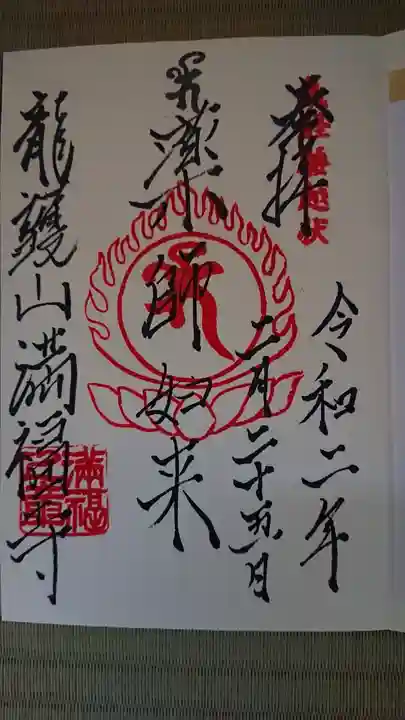 奉拝
義経腰越状
令和二年
二月二十五日
薬師如来
龍護山満福寺
満福